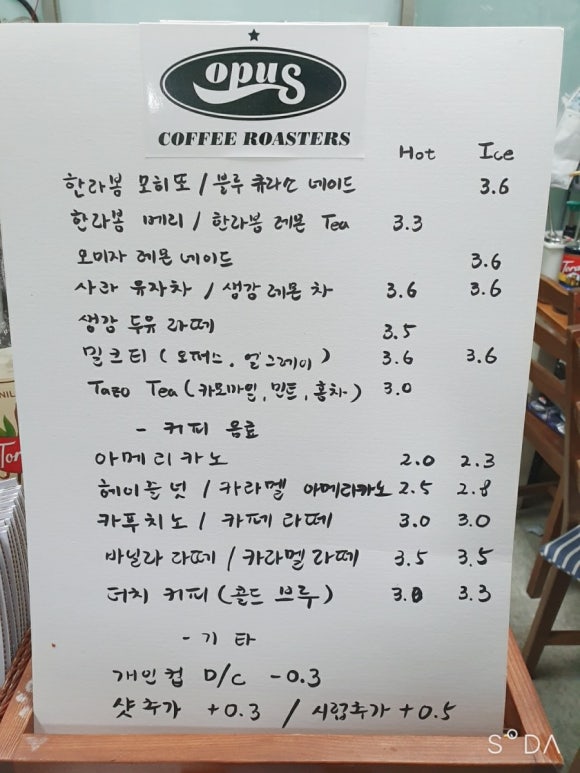 opus
COFFEE ROASTERS
Hot Ice
한라봉 모히또 / 블루 큐라소 네이드 3.6
한라봉 메리 / 한라봉 레몬 Tea 3.3
오미자 레몬 네이드 3.6
사라 유자차 / 생강 레몬 차 3.6 3.6
생강 두유 라떼 3.5
밀크티 ( 오퍼스. 얼그레이 ) 3.6 3.6
Tazo Tea ( 카모마일, 민트, 홍차 ) 3.0
- 커피 음료
아메리카노 2.0 2.3
헤이즐넛 / 카라멜 아메리카노 2.5 2.8
카푸치노 / 카페 라떼 3.0 3.0
바닐라 라떼 / 카라멜 라떼 3.5 3.5
더치 커피 ( 콜드 브루 ) 3.0 3.3
- 기타
개인컵 D/C -0.3
샷추가 +0.3 / 시럽추가 +0.5
SODA